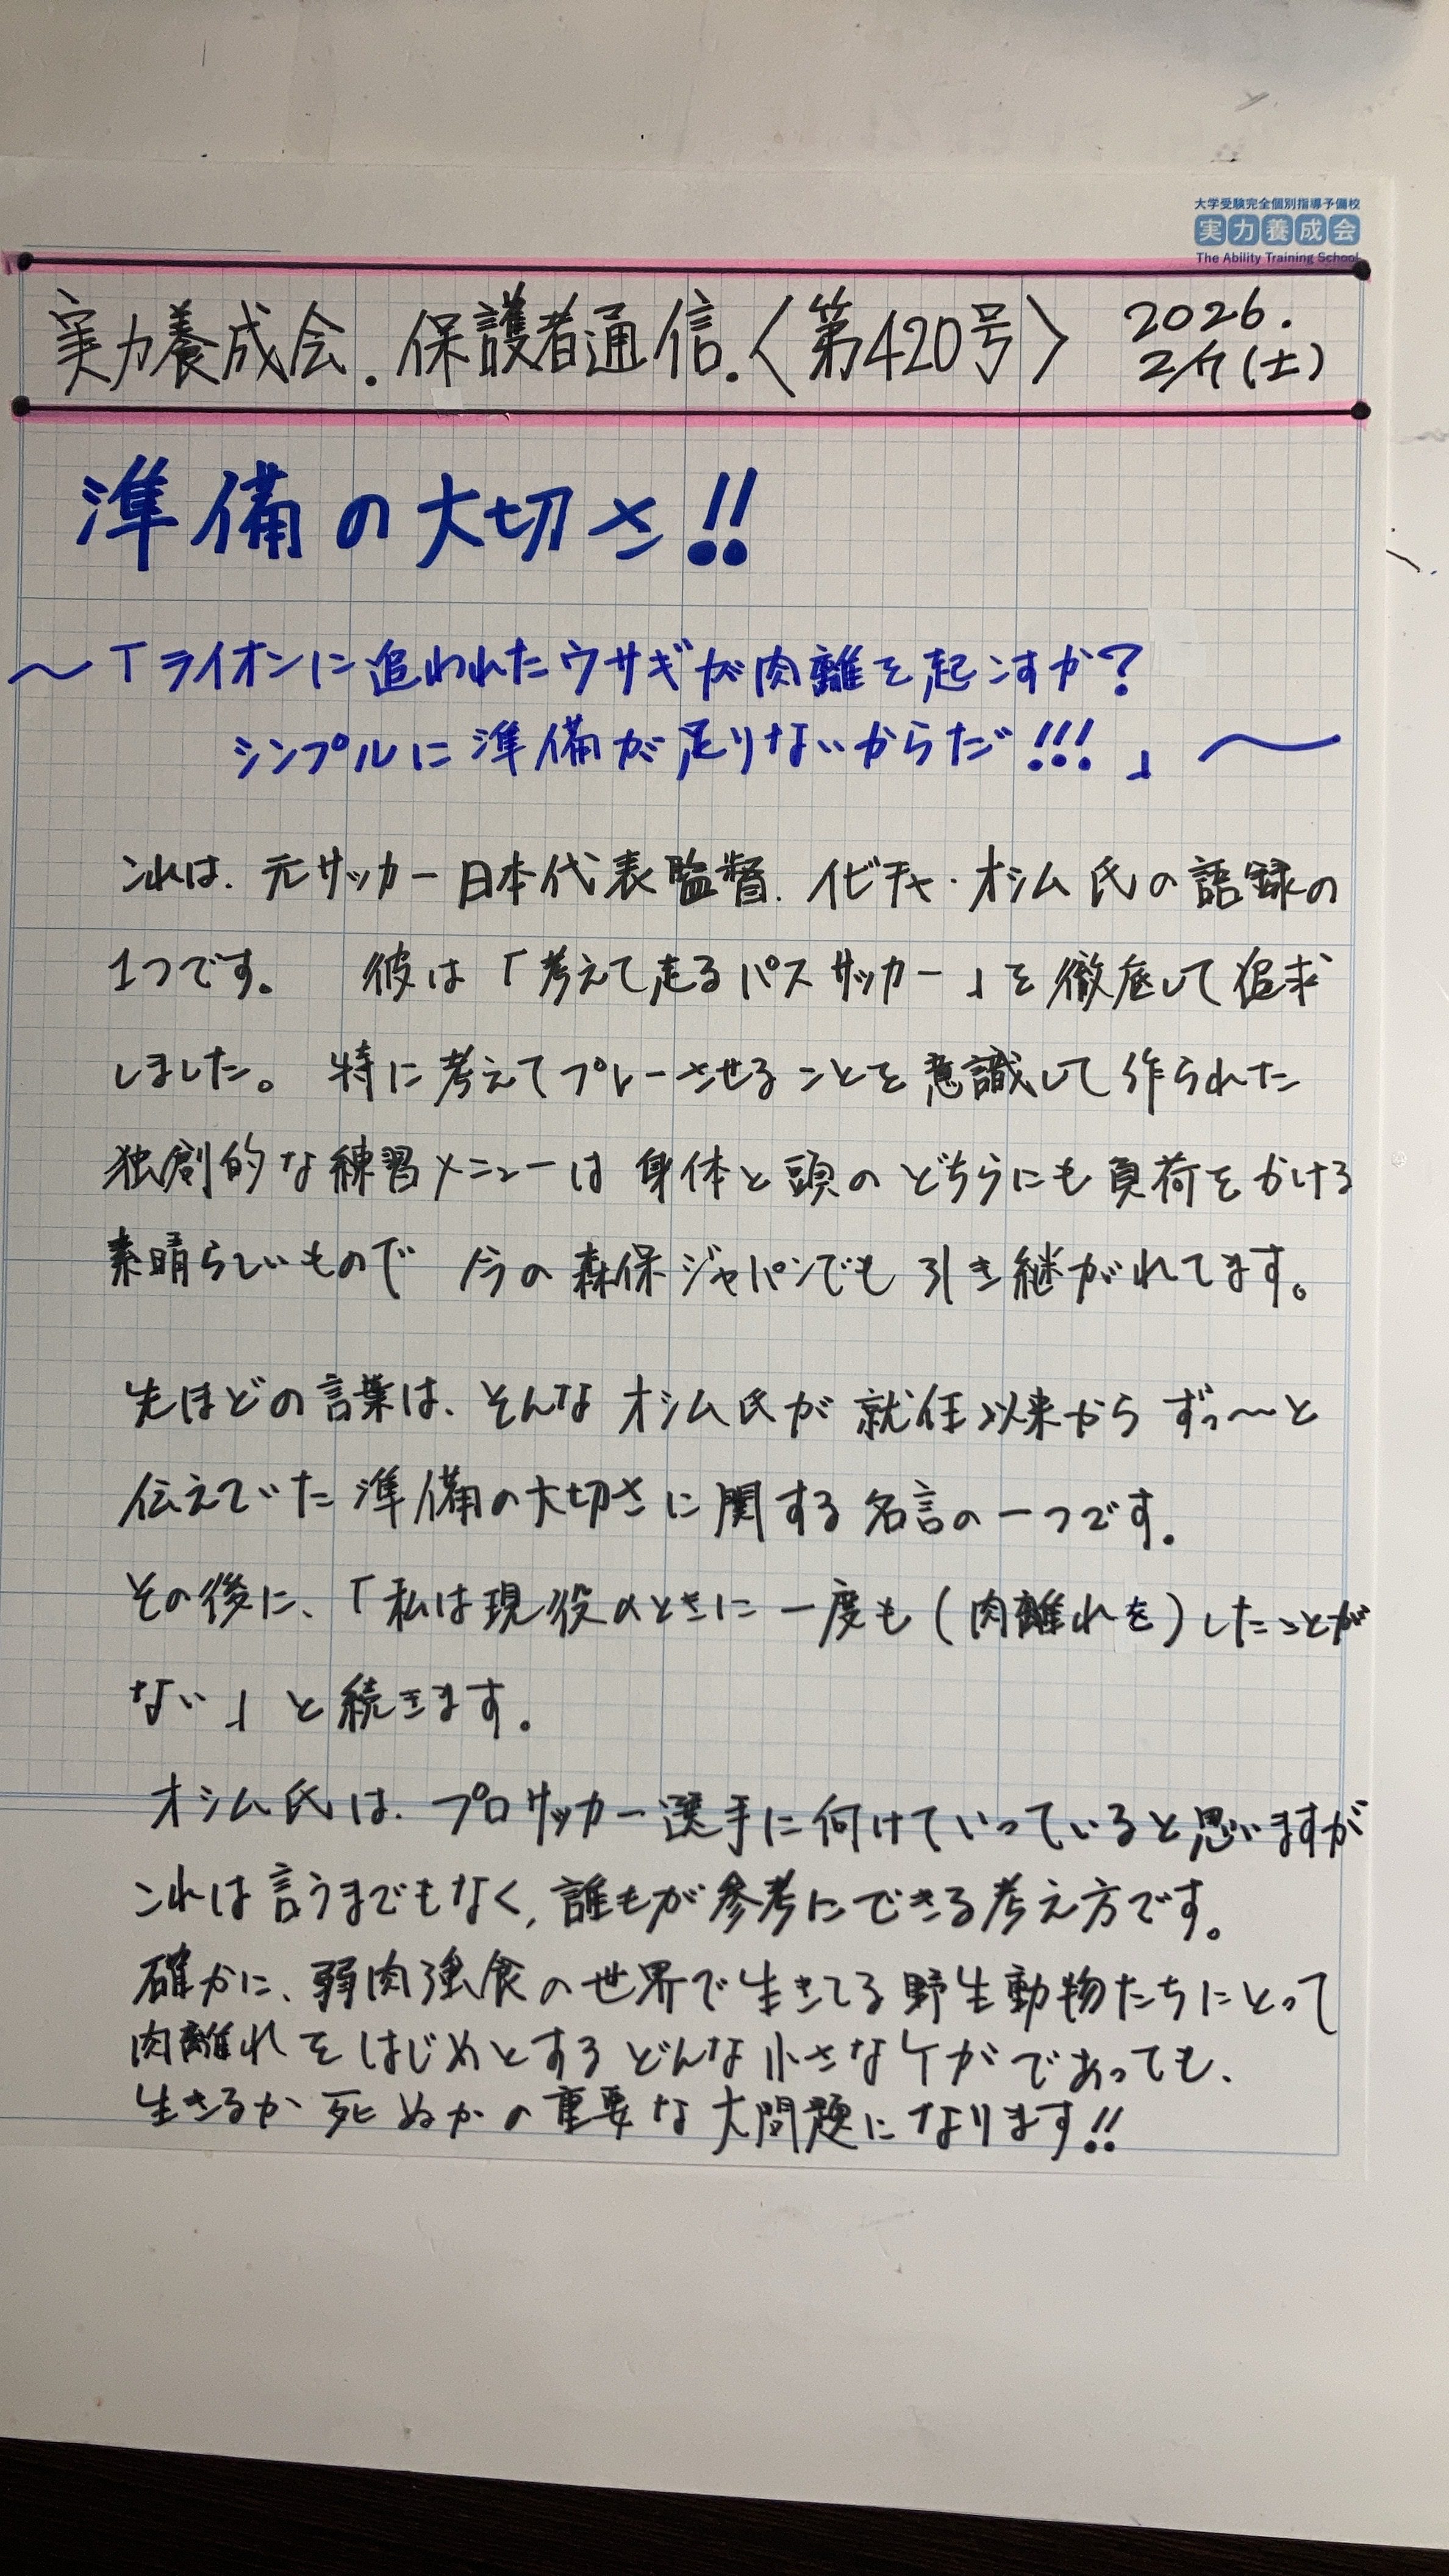 大学受験完全個別指導予備校
実力養成会
The Ability Training School
実力養成会.保護者通信.〈第420号〉
2026.
2/7(土)
準備の大切さ!!
〜「ライオンに追われたウサギが肉離を起こすか?
シンプルに準備が足りないからだ!!!」〜
これは、元サッカー日本代表監督、イビチャ・オシム氏の語録の
1つです。 彼は「考えて走るパスサッカー」を徹底して追求
しました。 特に考えてプレーさせることを意識して作られた
独創的な練習メニューは身体と頭のどちらにも負荷をかける
素晴らしいもので 今の森保ジャパンでも引き継がれてます。
先ほどの言葉は、そんなオシム氏が就任以来からずっ〜と
伝えていた準備の大切さに関する名言の一つです。
その後に、「私は現役のときに一度も(肉離れを)したことが
ない」と続きます。
オシム氏は、プロサッカー選手に向けていっていると思いますが
これは言うまでもなく、誰もが参考にできる考え方です。
確かに、弱肉強食の世界で生きてる野生動物たちにとって
肉離れをはじめとするどんな小さなケガであっても、
生きるか死ぬかの重要な大問題になります!!